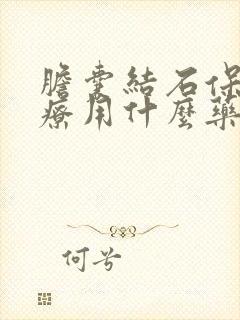 膽囊結石保
療用什麼藥
何兮